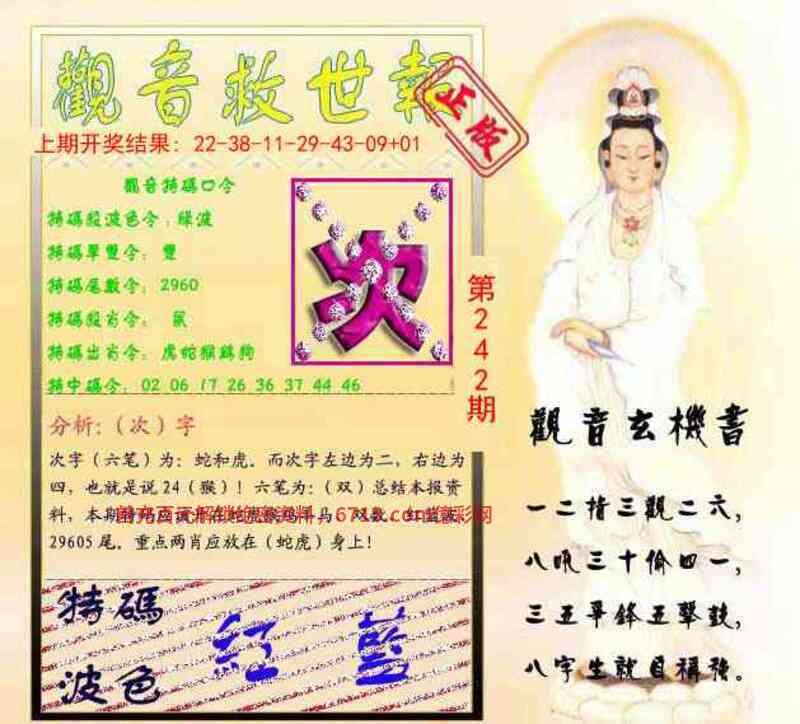 觀音救世報
正版
上期开奖结果：22-38-11-29-43-09+01
觀音特碼口令
特碼殺波色令：綠波
特碼單雙令： 雙
特碼尾數令：2960
特碼殺肖令： 鼠
特碼出肖令：虎蛇猴鷄狗
特中碼令：02 06 17 26 36 37 44 46
次
第242期
分析:（次）字
次字（六笔）为：蛇和虎．而次字左边为二，右边为
四，也就是说24（猴）！六笔为:（双）总结本报资
料，本期特
29605尾．重点两肖应放在（蛇虎）身上！
特碼
波色
紅 藍
觀音玄機書
一二指三觀二六，
八吼三十偷四一，
三五爭鋒五擊鼓，
八字生就自稱強。